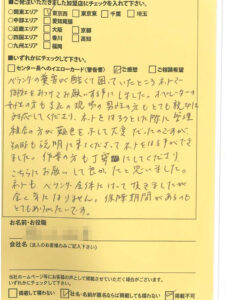 ■ご発注いただきました加盟店にチェックを入れて下さい。
○関東エリア □東京西 □東京東 □千葉 □埼玉
○中部エリア □愛知尾張
○近畿エリア □大阪 □京都
○四国エリア □香川 □高知
○九州エリア □福岡
■いずれかにチェックして下さい。
□センター長へのイエローカード（警告書） ☑ご感想 □ご相談希望
ベランダの糞害が酷くて困っていたところネットで
御社をみつけお願い致しました。オペレーターの
女性の方も
現場の男性の方もとても親切に
対応してくださり、ネットをはろうとした際に管理
組合の方が難色を示して
説明に来てくださって、ネットをはる事ができ
ました。作業の方も丁寧にしてくださり
こちらにお願いして良かったと思いました。
ネットも ベランダ全体にはって頂きましたが
全く気になりません。保障期間があるのも
とてもありがたいです。
お名前・お役職
会社名 （法人のお客様のみご記入下さい）
当社ホームページ等にお客様の声として掲載させていただく場合がございます。
いずれかにチェックして下さい。
□掲載して構わない ☑社名・名前が匿名ならば掲載して構わない □掲載不可